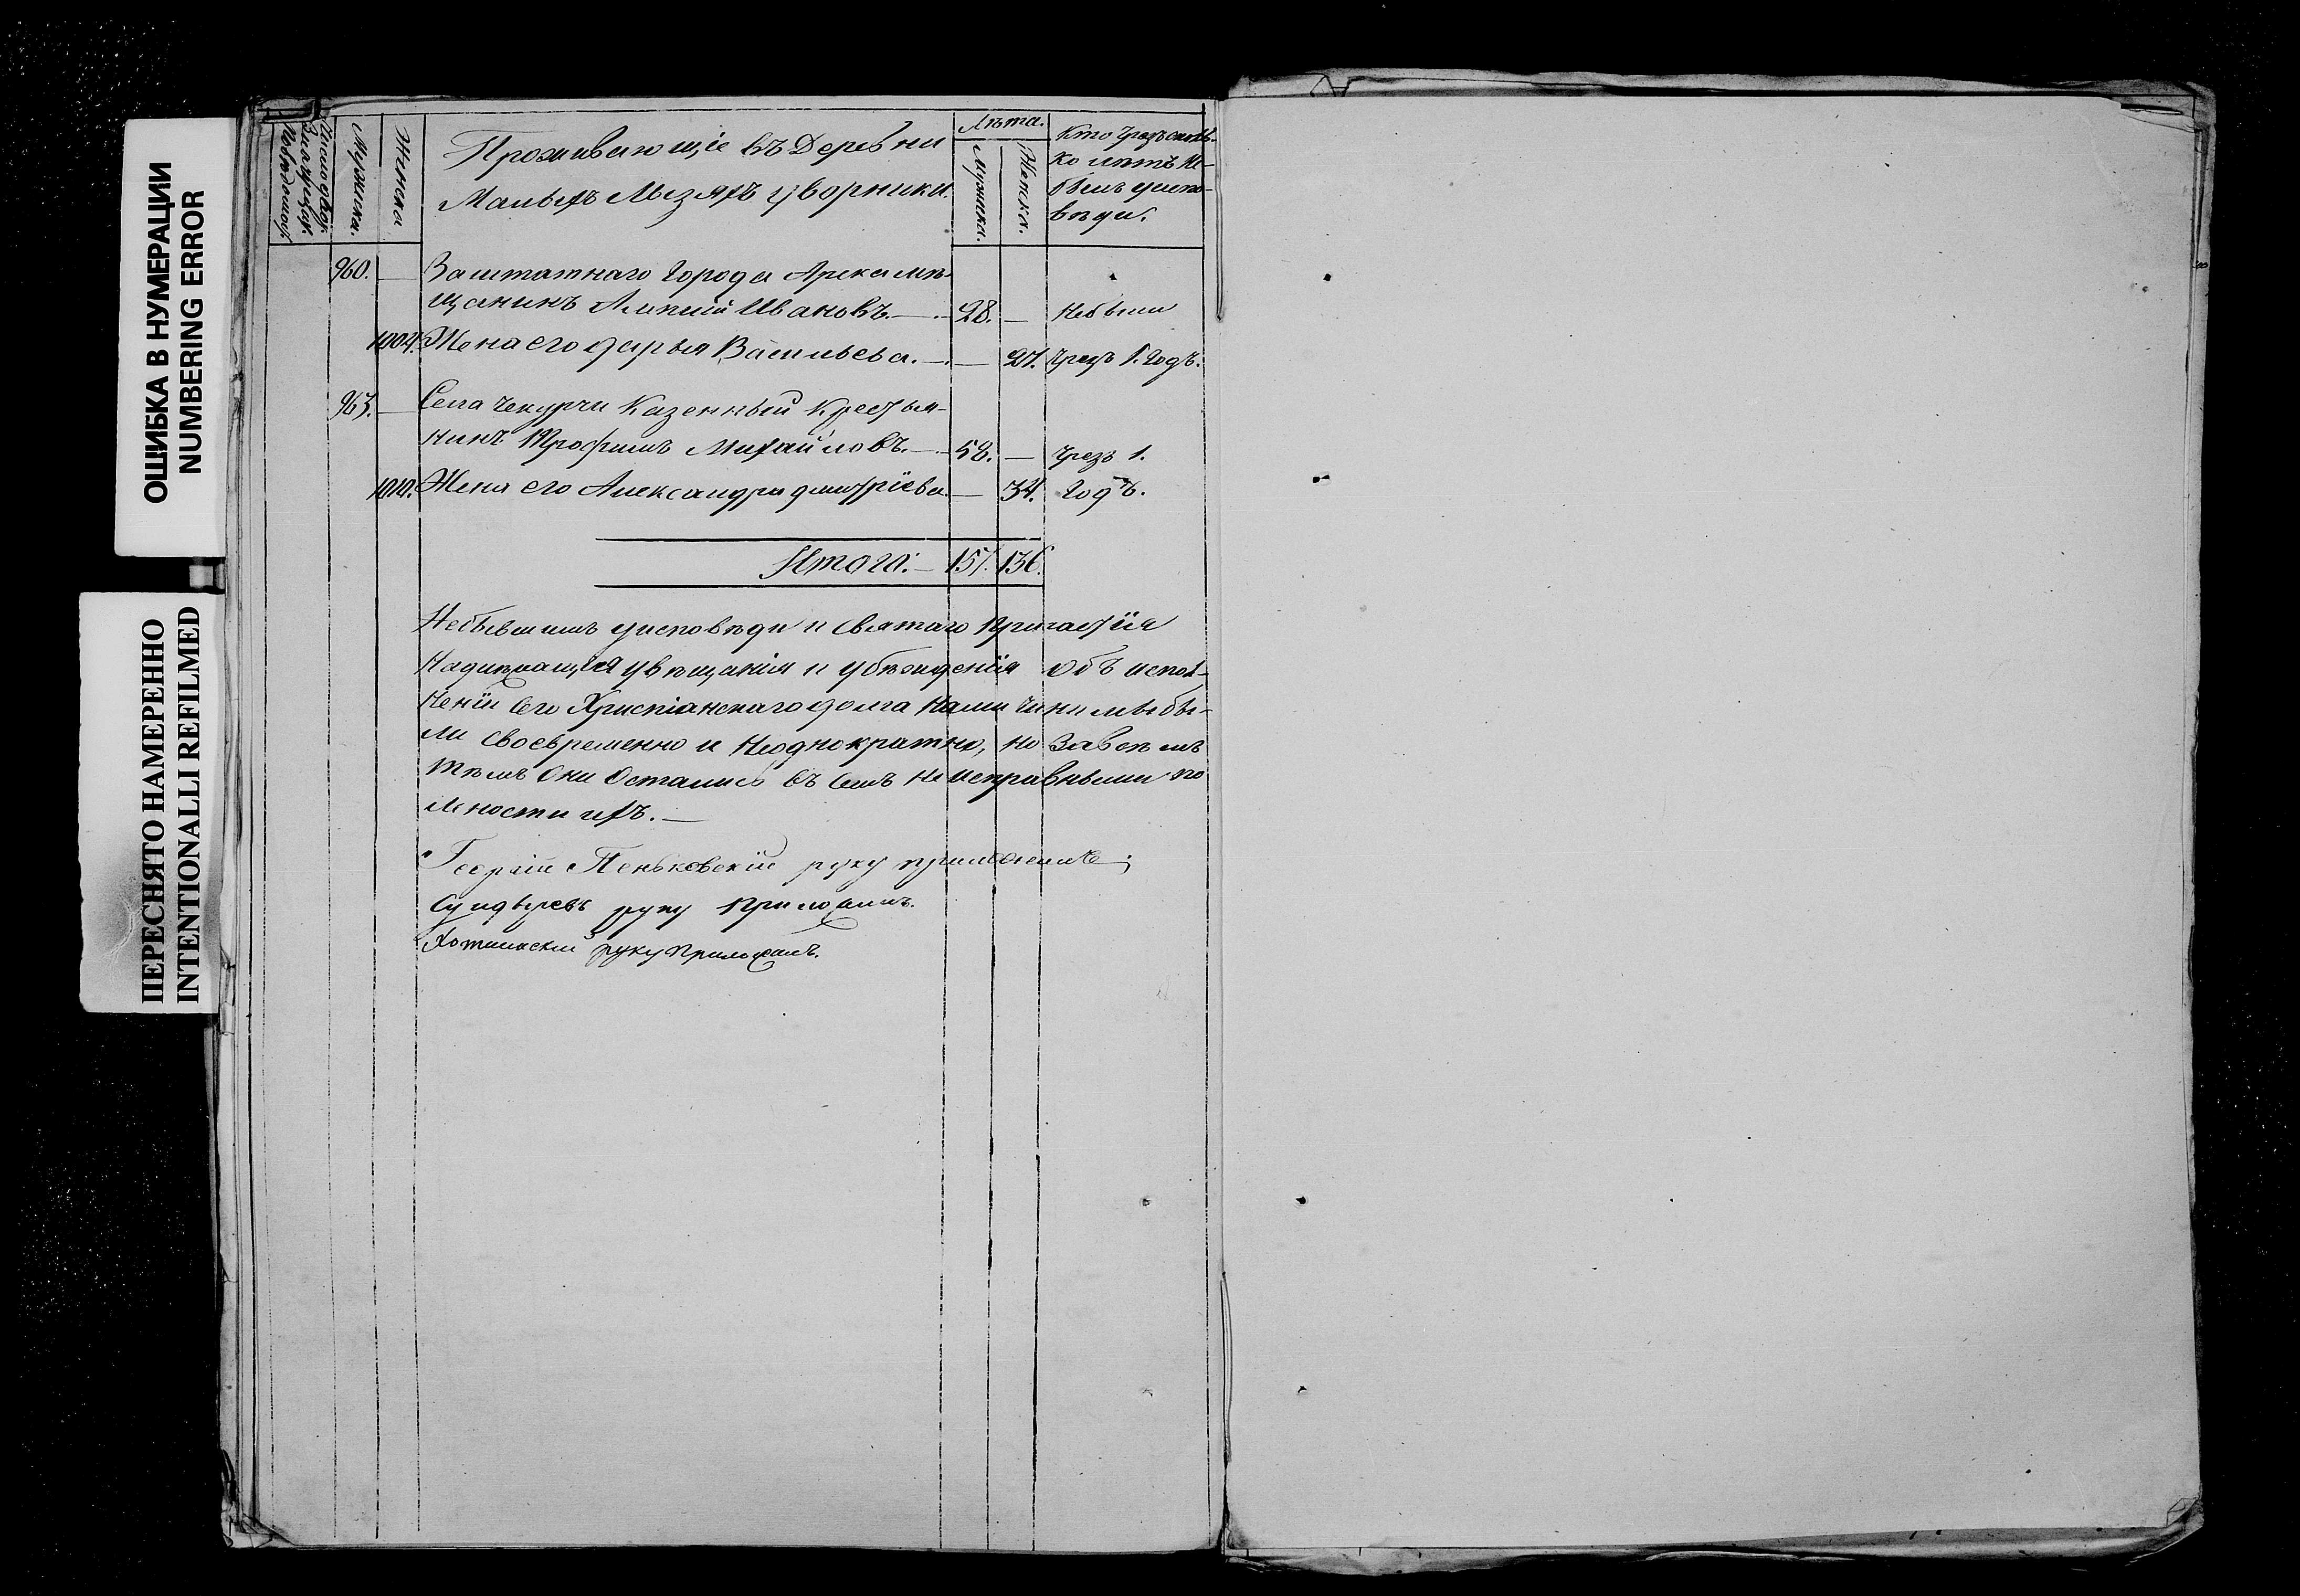 ОШИБКА В НУМЕРАЦИИ
NUMBERING ERROR
ПЕРЕСНЯТО НАМЕРЕННО
INTENTIONALLI REFILMED
Мужска.
Женска
Проживающіе въ Деревни
Малыхъ Мызяхъ дворники.
Лѣта.
Мужска.
Женска.
Кто чрезъ сколь-
ко лѣтъ не
былъ у испо-
вѣди.
960. — Заштатнаго Города Арска мѣ-
щанинъ Алипій Ивановъ. — 28. — Небыли
1004. Жена его дарья Васильева. — — 27. чрезъ 1. Годъ.
963. — Села Чекурчи Казенный Крестья-
нинъ Трофимъ Михайловъ. — 58. — чрезъ 1.
1010. Жена его Александра дмитріева. — 34. Годъ.
Итого: — 157. 136.
Небывшимъ уисповѣди и Святаго Причастія
Надлежащія увѣщанія и убѣжденія объ испол-
неніи Сего Христіанскаго долга Нами чинимы бы-
ли своевременно и Неоднократно, но Завсѣмъ
тѣмъ Они Остались въ семъ Неисправными по
лѣности ихъ. —
Георгій Пеньковскій руку приложилъ;
руку Приложилъ.
руку Приложилъ.